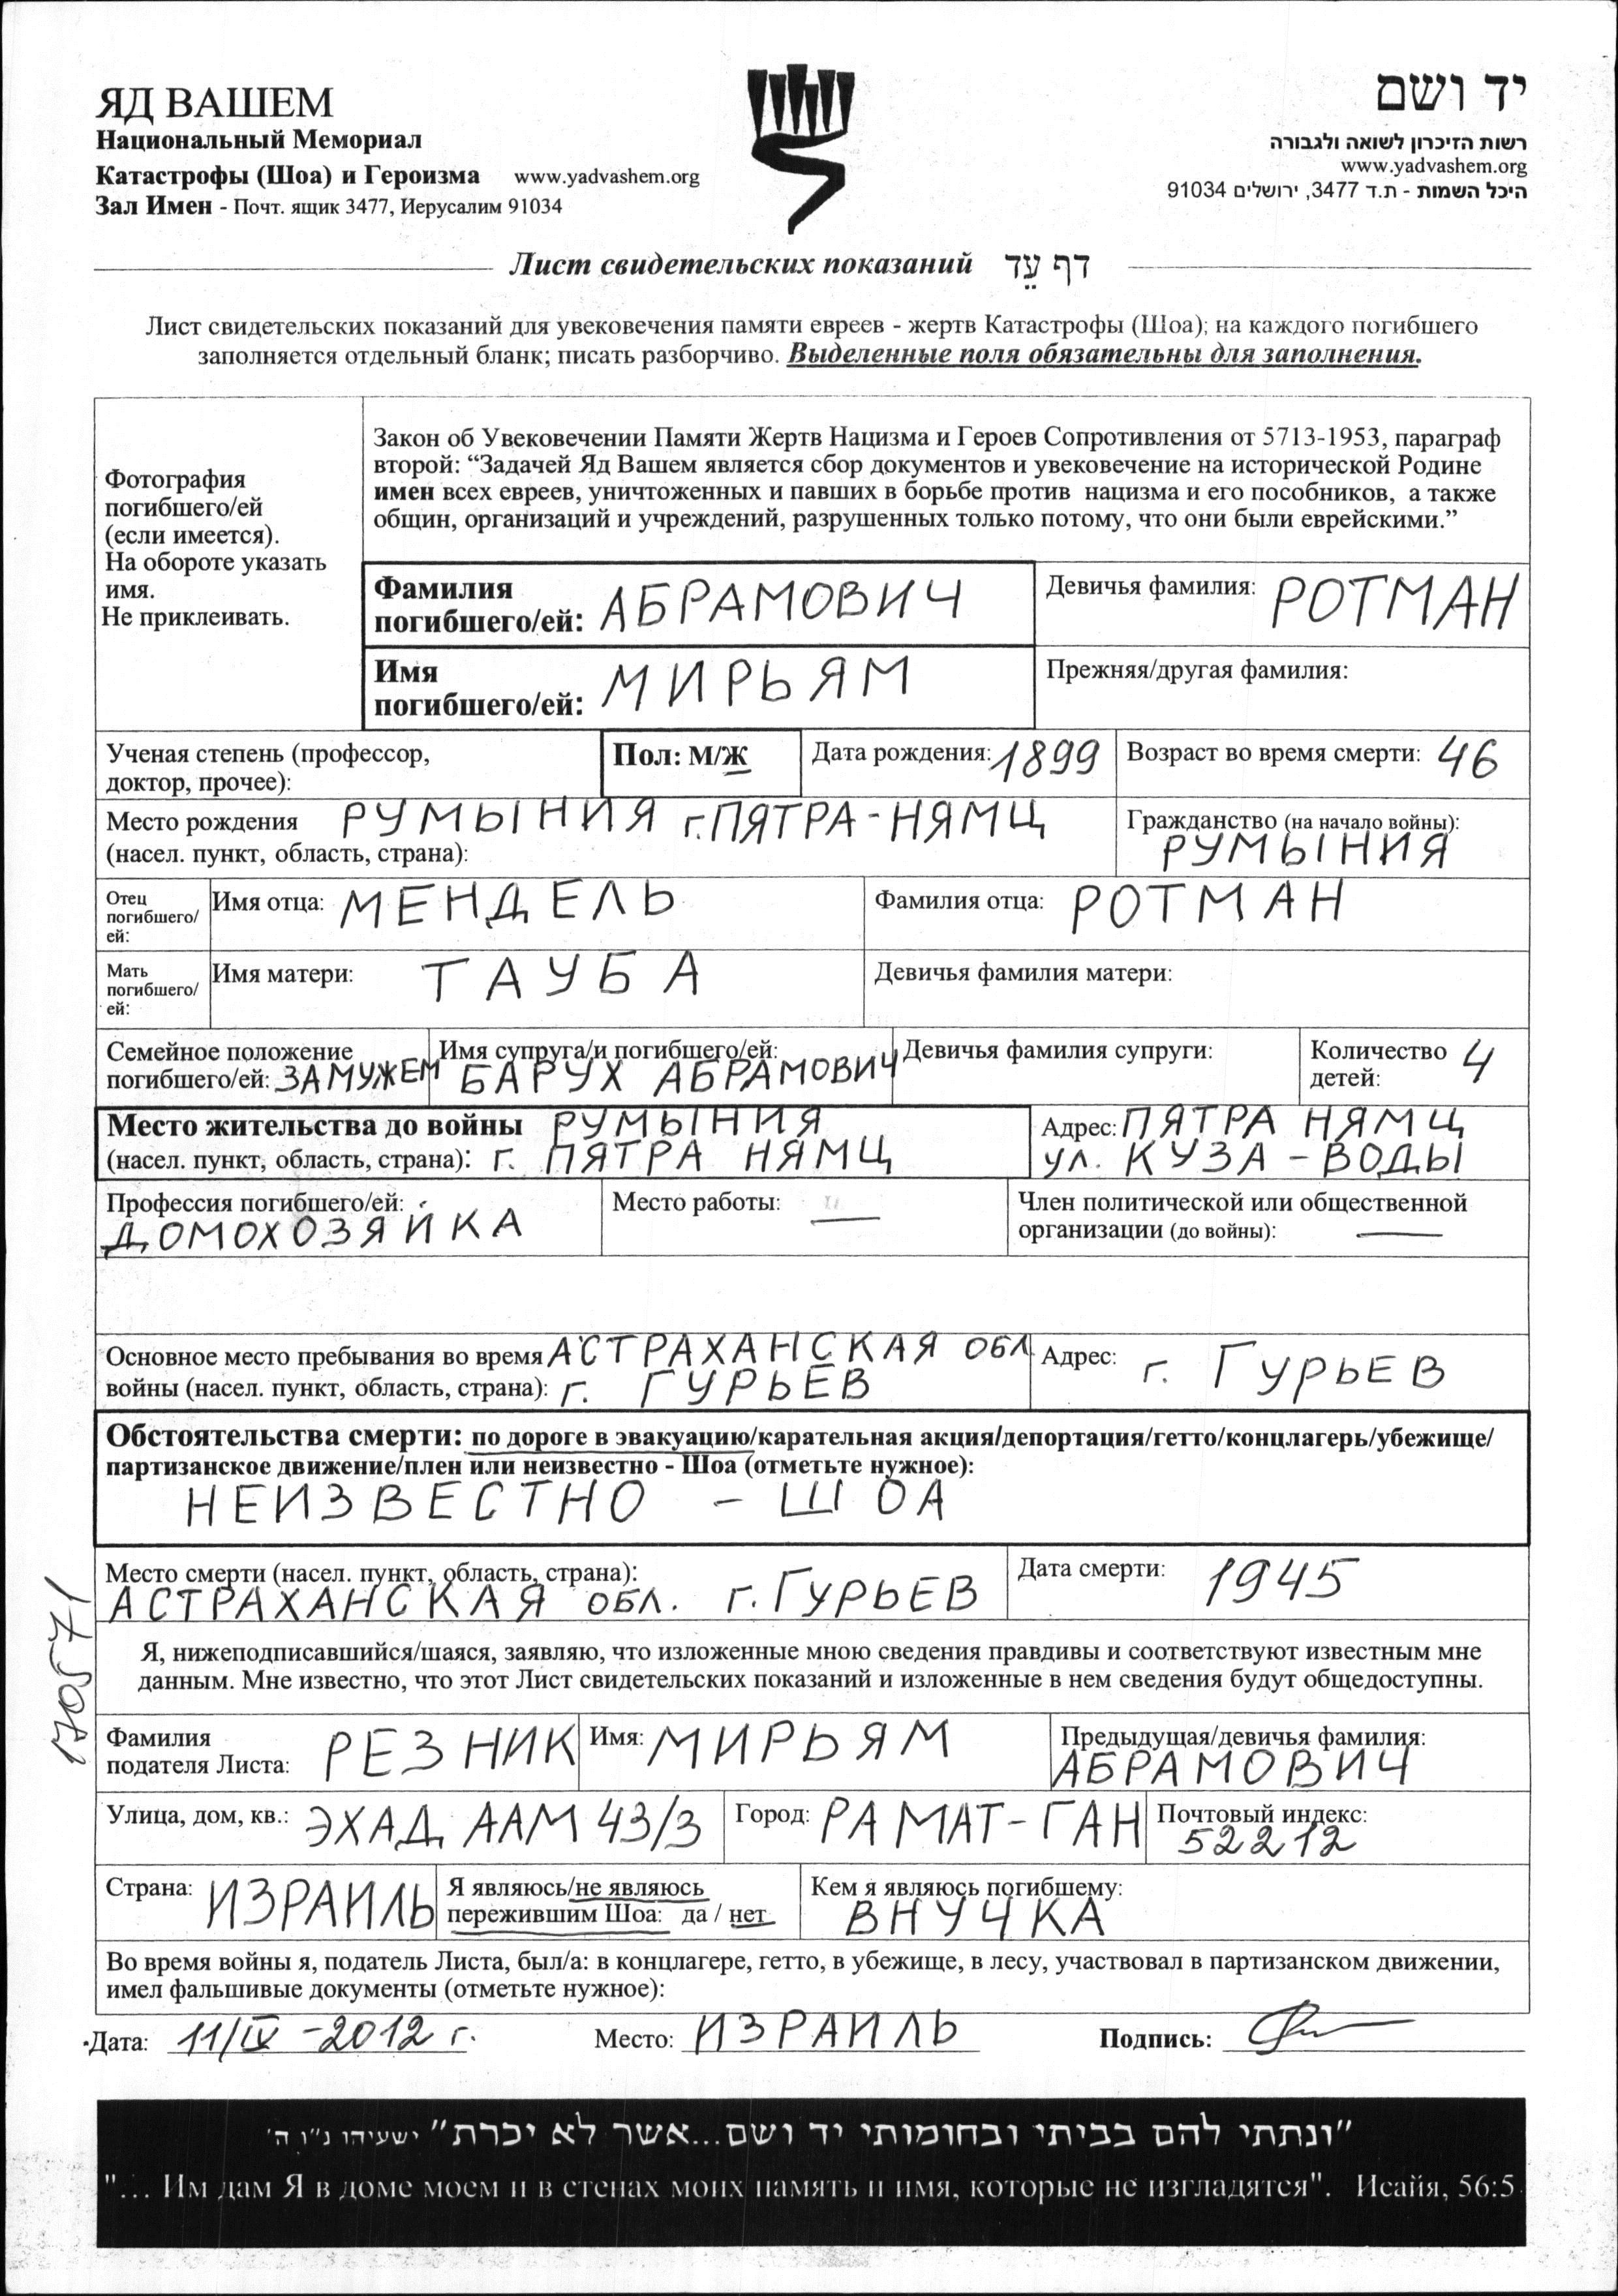 ЯД ВАШЕМ
Национальный Мемориал
Катастрофы (Шоа) и Героизма www.yadvashem.org
Зал Имен - Почт. ящик 3477, Иерусалим 91034
יד ושם
רשות הזיכרון לשואה ולגבורה
www.yadvashem.org
היכל השמות - ת.ד 3477, ירושלים 91034
Лист свидетельских показаний דף עֵד
Лист свидетельских показаний для увековечения памяти евреев - жертв Катастрофы (Шоа); на каждого погибшего
заполняется отдельный бланк; писать разборчиво. Выделенные поля обязательны для заполнения.
Фотография
погибшего/ей
(если имеется).
На обороте указать
имя.
Не приклеивать.
Закон об Увековечении Памяти Жертв Нацизма и Героев Сопротивления от 5713-1953, параграф
второй: “Задачей Яд Вашем является сбор документов и увековечение на исторической Родине
имен всех евреев, уничтоженных и павших в борьбе против нацизма и его пособников, а также
общин, организаций и учреждений, разрушенных только потому, что они были еврейскими.”
Фамилия
погибшего/ей: АБРАМОВИЧ
Девичья фамилия: РОТМАН
Имя
погибшего/ей: МИРЬЯМ
Прежняя/другая фамилия:
Ученая степень (профессор,
доктор, прочее):
Пол: М/Ж
Дата рождения: 1899
Возраст во время смерти: 46
Место рождения РУМЫНИЯ г.ПЯТРА-НЯМЦ
(насел. пункт, область, страна):
Гражданство (на начало войны):
РУМЫНИЯ
Отец
погибшего/
ей:
Имя отца: МЕНДЕЛЬ
Фамилия отца: РОТМАН
Мать
погибшего/
ей:
Имя матери: ТАУБА
Девичья фамилия матери:
Семейное положение
погибшего/ей: ЗАМУЖЕМ
Имя супруга/и погибшего/ей:
БАРУХ АБРАМОВИЧ
Девичья фамилия супруги:
Количество
детей: 4
Место жительства до войны РУМЫНИЯ
(насел. пункт, область, страна): г. ПЯТРА НЯМЦ
Адрес: ПЯТРА НЯМЦ
ул. КУЗА - ВОДЫ
Профессия погибшего/ей:
ДОМОХОЗЯЙКА
Место работы: —
Член политической или общественной
организации (до войны): —
Основное место пребывания во время АСТРАХАНСКАЯ ОБЛ
войны (насел. пункт, область, страна): г. ГУРЬЕВ
Адрес: г. ГУРЬЕВ
Обстоятельства смерти: по дороге в эвакуацию/карательная акция/депортация/гетто/концлагерь/убежище/
партизанское движение/плен или неизвестно - Шоа (отметьте нужное):
НЕИЗВЕСТНО - ШОА
Место смерти (насел. пункт, область, страна):
АСТРАХАНСКАЯ ОБЛ. г. ГУРЬЕВ
Дата смерти: 1945
170571
Я, нижеподписавшийся/шаяся, заявляю, что изложенные мною сведения правдивы и соответствуют известным мне
данным. Мне известно, что этот Лист свидетельских показаний и изложенные в нем сведения будут общедоступны.
Фамилия
подателя Листа: РЕЗНИК
Имя: МИРЬЯМ
Предыдущая/девичья фамилия:
АБРАМОВИЧ
Улица, дом, кв.: ЭХАД ААМ 43/3
Город: РАМАТ-ГАН
Почтовый индекс:
52212
Страна: ИЗРАИЛЬ
Я являюсь/не являюсь
пережившим Шоа: да / нет
Кем я являюсь погибшему:
ВНУЧКА
Во время войны я, податель Листа, был/а: в концлагере, гетто, в убежище, в лесу, участвовал в партизанском движении,
имел фальшивые документы (отметьте нужное):
Дата: 11/IV-2012 г. Место: ИЗРАИЛЬ Подпись:
"ונתתי להם בביתי ובחומותי יד ושם...אשר לא יכרת" ישעיהו נ"ו ה'
"... Им дам Я в доме моем и в стенах моих память и имя, которые не изгладятся". Исайя, 56:5